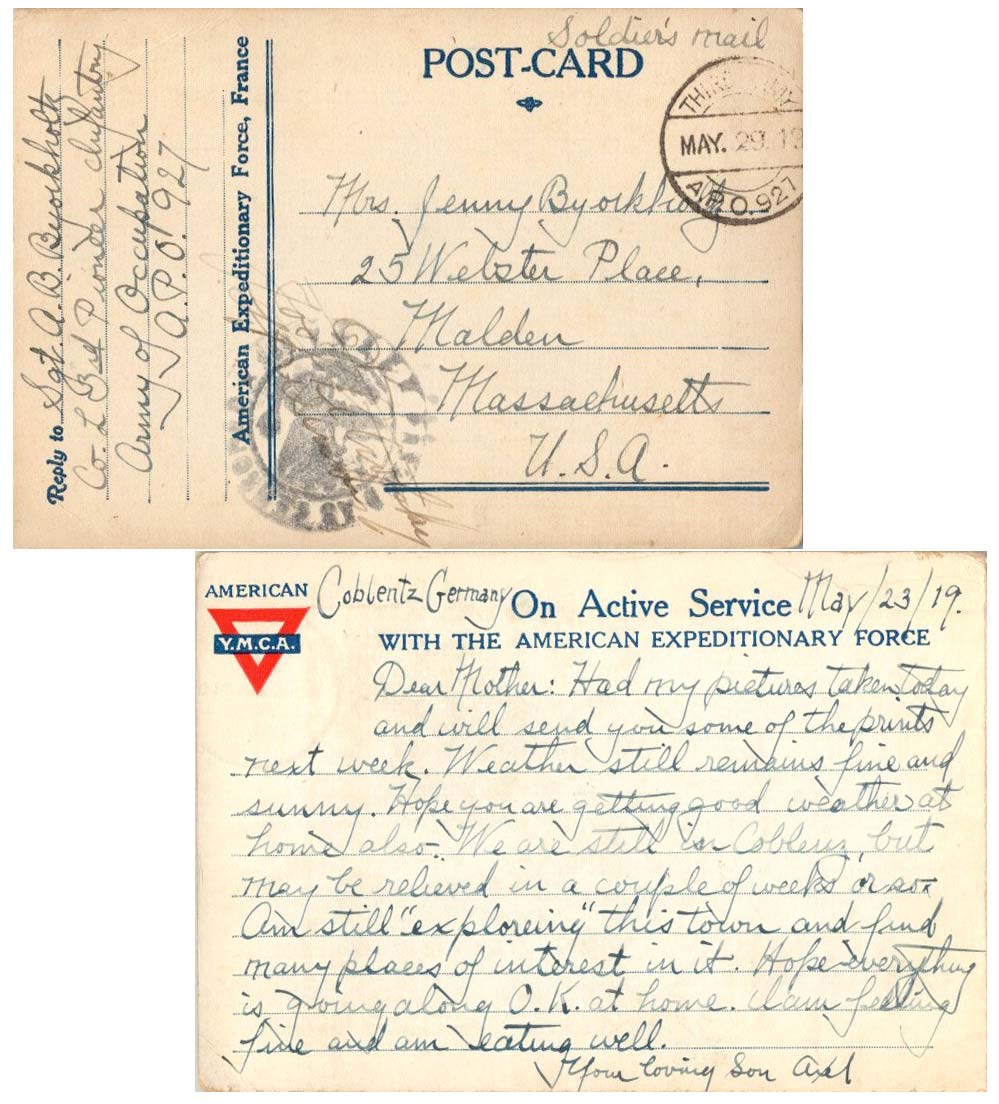 Soldier's mail
POST-CARD
THIRD ARMY
MAY. 29. 19
A.P.O. 927
Mrs. Jenny Byorkholtz
25 Webster Place,
Malden
Massachusetts
U.S.A.
American Expeditionary Force, France
Reply to Sgt. A.B. Byorkholtz
Co- L 3rd Pioneer Infantry
Army of Occupation
A.P.O. 927
AMERICAN
Y.M.C.A.
Coblentz Germany On Active Service May/23/19.
WITH THE AMERICAN EXPEDITIONARY FORCE
Dear Mother: Had my pictures taken today
and will send you some of the prints
next week. Weather still remains fine and
sunny. Hope you are getting good weather at
home also. We are still in Coblenz, but
may be relieved in a couple of weeks or so-
Am still "exploreing" this town and find
many places of interest in it. Hope everything
is going along O.K. at home. I am feeling
fine and am eating well.
Your loving Son Axl